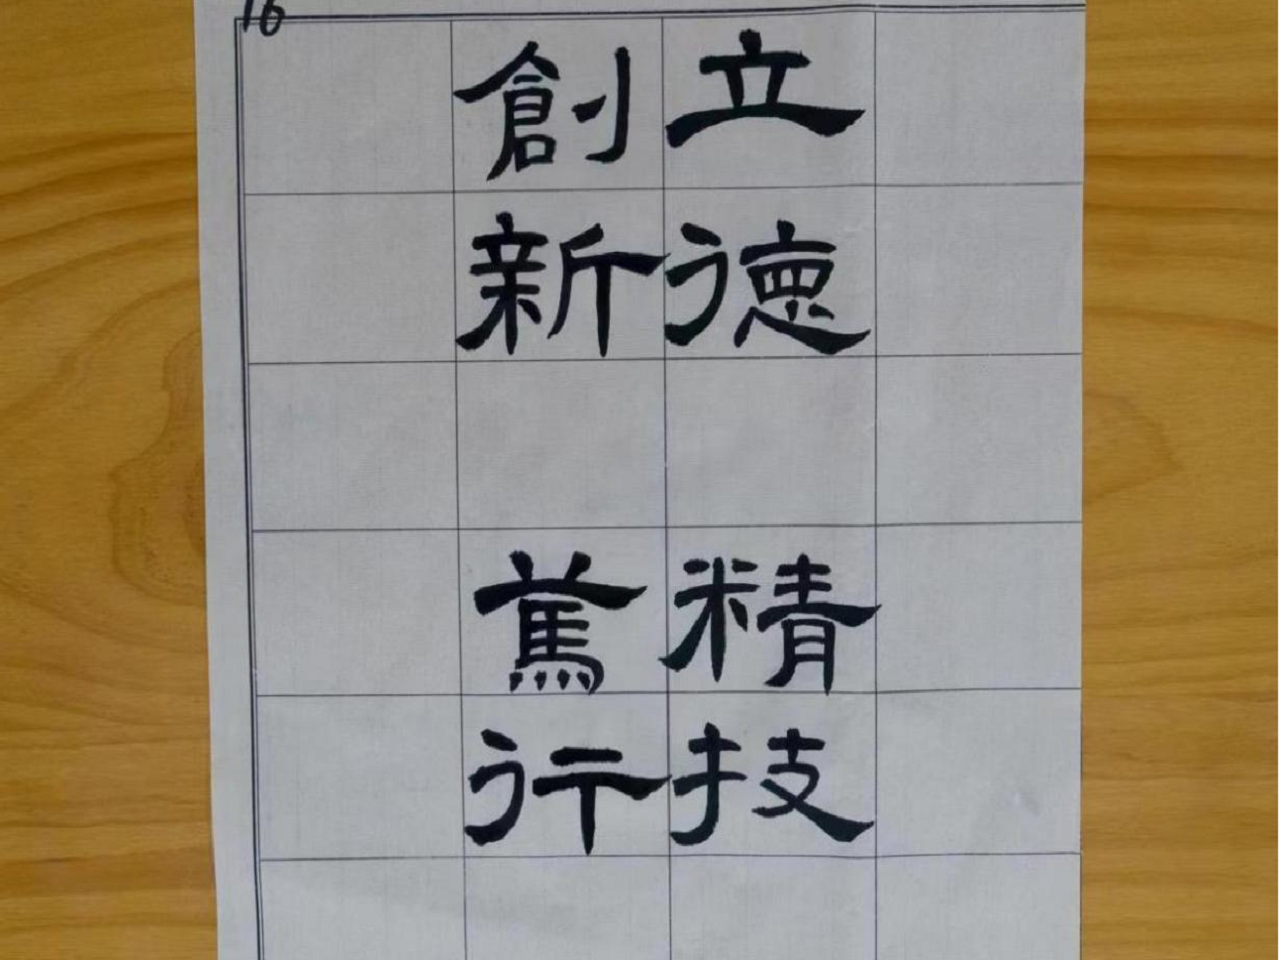 16
立德
精技
創新
篤行